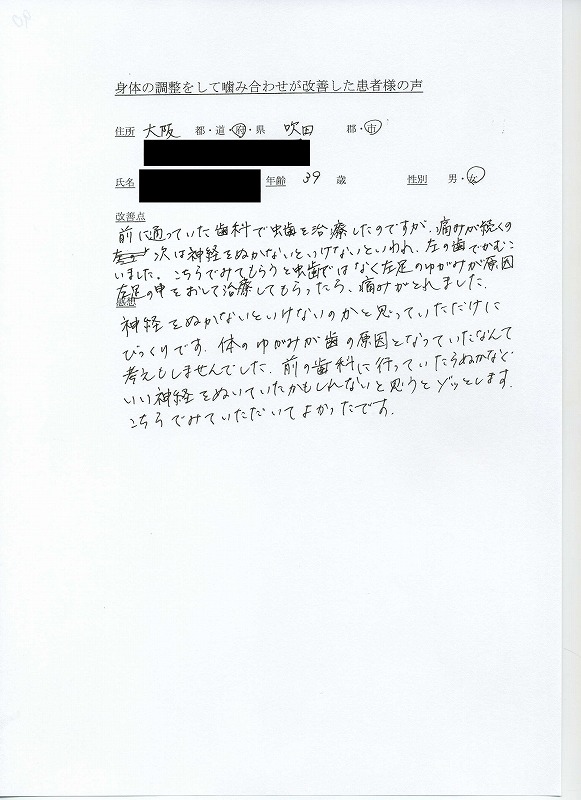 身体の調整をして噛み合わせが改善した患者様の声
住所 大阪 都・道・府・県 吹田 郡・市
氏名 年齢 39 歳 性別 男・女
改善点
前に通っていた歯科で虫歯を治療したのですが、痛みが続くの
で次は神経をぬかないといけないといわれ、左の歯でかむこ
いました。こちらでみてもらうと虫歯ではなく左足のゆがみが原因
左足の甲をおして治療してもらったら、痛みがとれました。
感想
神経をぬかないといけないのかと思っていただけに
びっくりです。体のゆがみが歯の原因となっていたなんて
考えもしませんでした。前の歯科に行っていたらぬかなくて
いい神経をぬいていたかもしれないと思うとゾッとします。
こちらでみていただいてよかったです。